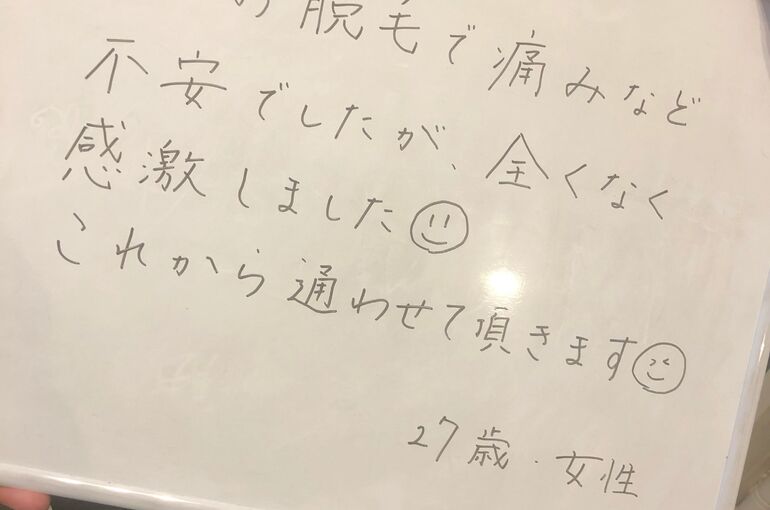 の脱毛で痛みなど
不安でしたが、全くなく
感激しました☺
これから通わせて頂きます😆
27歳・女性